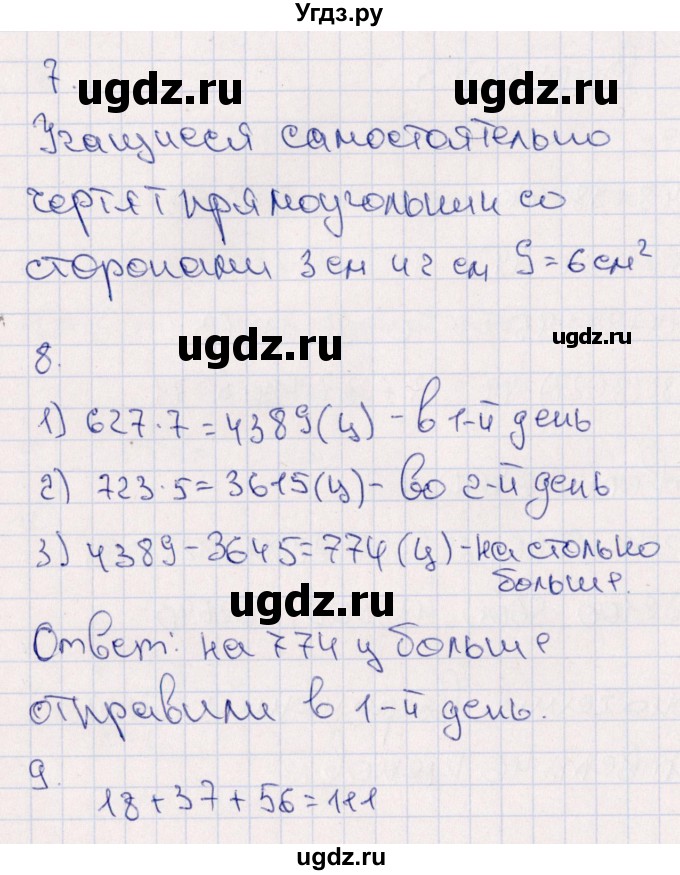 Угдз.ру
7.
ugdz.ru ugdz.ru
Учащиеся самостоятельно
чертят прямоугольник со
сторонами 3 см и 2 см S=6см²
ugdz.ru
ugdz.ru
8.
1) 627·7=4389(ц) - в 1-й день
2) 723·5=3615(ц)- во 2-й день
3) 4389-3645=774(ц)-на столько
больше.
ugdz.ru
Ответ: на 774 ц больше
отправили в 1-й день.
9.
18+37+56=111
ugdz.ru